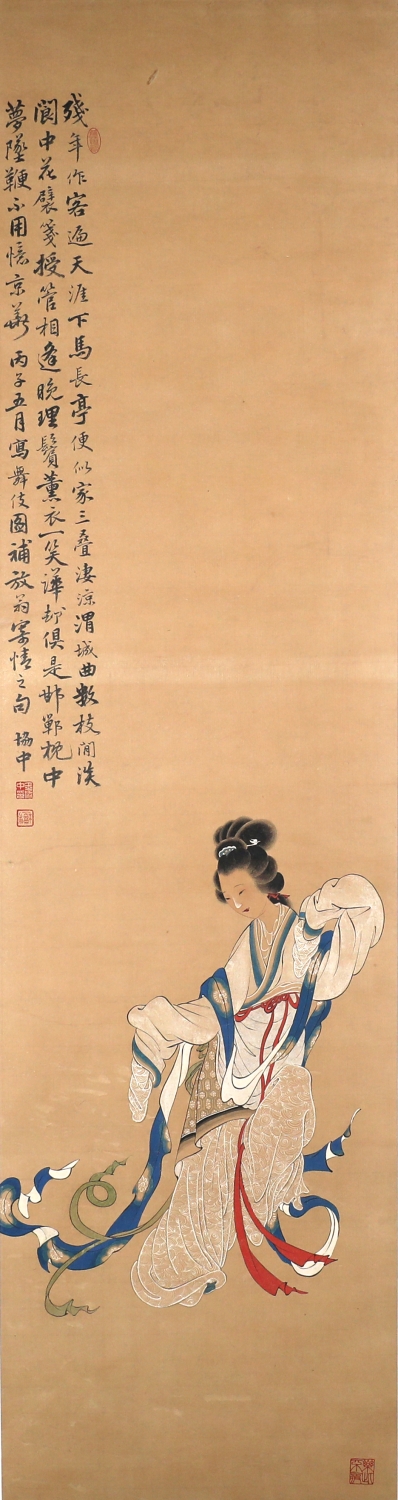 殘年作客遍天涯下馬長亭便似家三疊淒涼渭城曲數枝閒淡
閬中花襞箋授管相逢晚理鬢薰衣一笑譁却俱是邯鄲枕中
夢墜鞭不用憶京華 丙子五月寫舞伎圖補放翁寄情之句 楊中